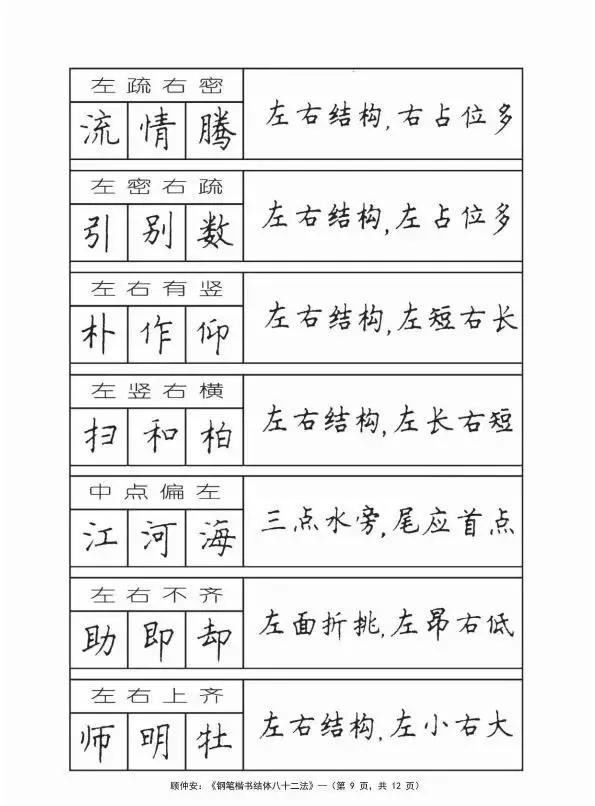 左疏右密
流情腾
左右结构,右占位多
左密右疏
引别数
左右结构,左占位多
左右有竖
朴作仰
左右结构,左短右长
左竖右横
扫和柏
左右结构,左长右短
中点偏左
江河海
三点水旁,尾应首点
左右不齐
助即却
左面折挑,左昂右低
左右上齐
师明牡
左右结构,左小右大
顾仲安:《钢笔楷书结体八十二法》—(第 9 页, 共 12 页)